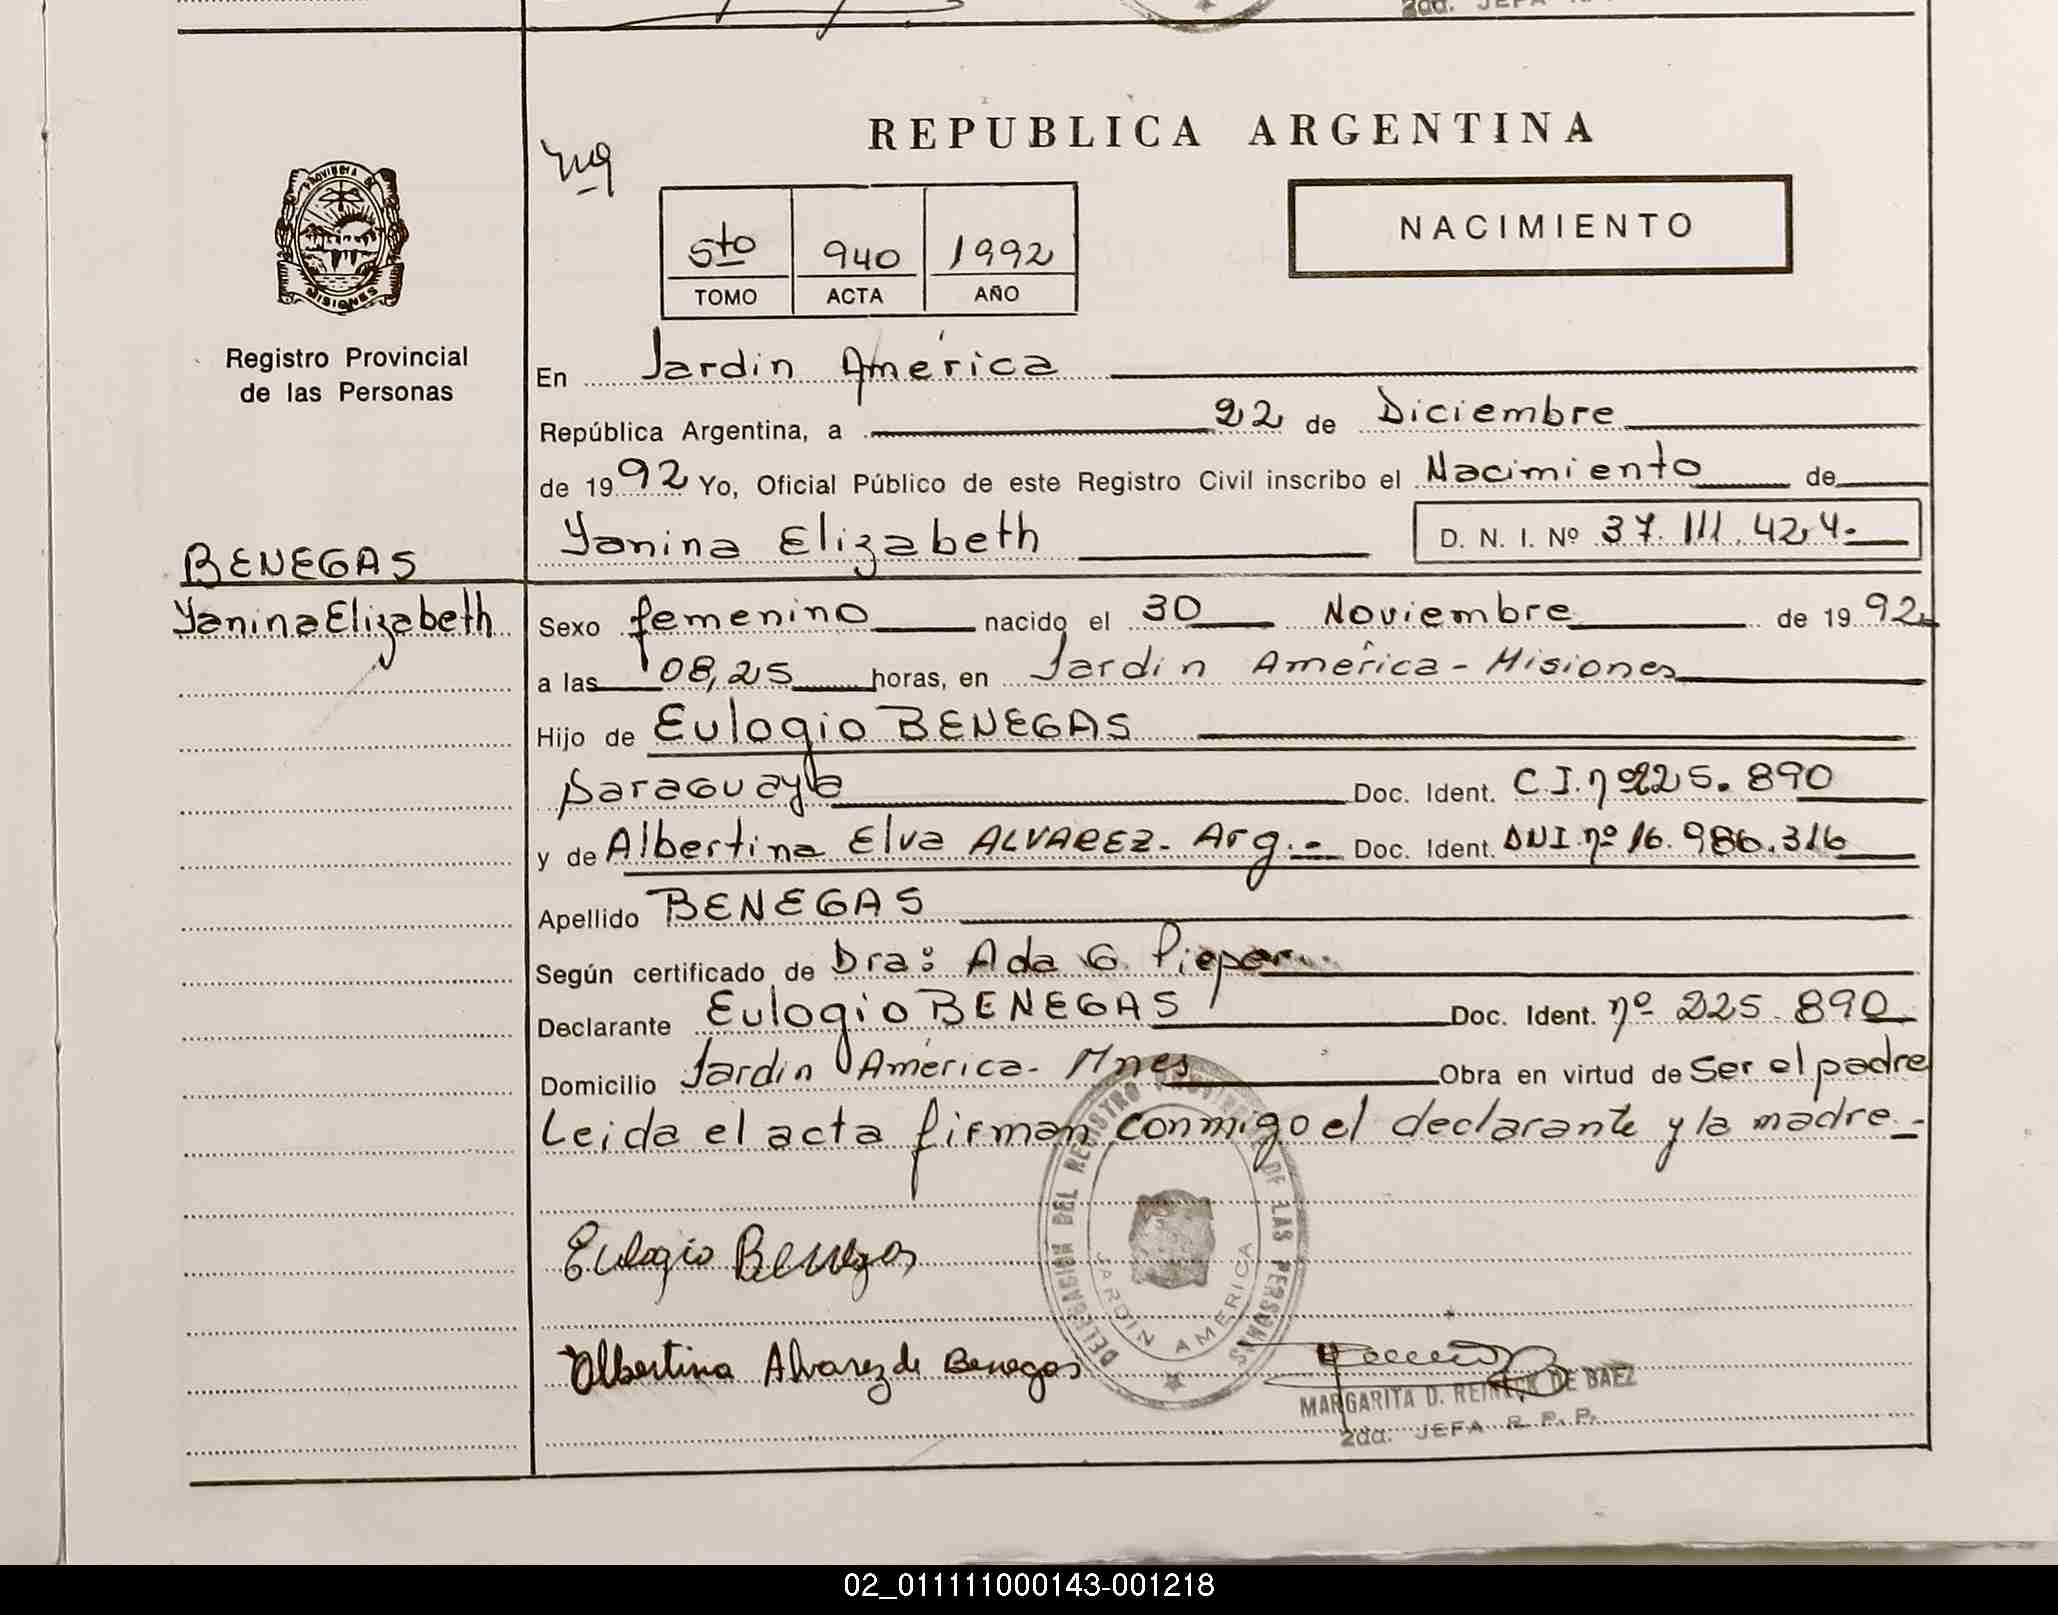 REPUBLICA ARGENTINA
5to 940 1992
TOMO ACTA AÑO
NACIMIENTO
PROVINCIA DE
MISIONES
Registro Provincial
de las Personas
En Jardin América
República Argentina, a 22 de Diciembre
de 1992 Yo, Oficial Público de este Registro Civil inscribo el Nacimiento de
Yanina Elizabeth D. N. I. Nº 37.111.424.-
BENEGAS
Yanina Elizabeth
Sexo femenino nacido el 30 Noviembre de 1992
a las 08,25 horas, en Jardin América - Misiones
Hijo de Eulogio BENEGAS
paraguaya Doc. Ident. C.I. nº 225.890
y de Albertina Elva ALVAREZ - Arg.- Doc. Ident. DNI. nº 16.986.316
Apellido BENEGAS
Según certificado de Dra: Ada G. Pieper
Declarante Eulogio BENEGAS Doc. Ident. nº 225.890
Domicilio Jardin América - Mnes Obra en virtud de Ser el padre
Leida el acta firman conmigo el declarante y la madre.-
Eulogio Benegas
Albertina Alvarez de Benegas
DELEGACION DEL REGISTRO PROVINCIAL DE LAS PERSONAS
JARDIN AMERICA
MARGARITA D. REINECK DE BAEZ
2da. JEFA R. P. P.
02_011111000143-001218